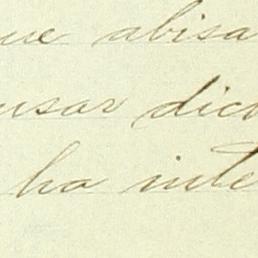 ue abisa
usar dich
ha inte